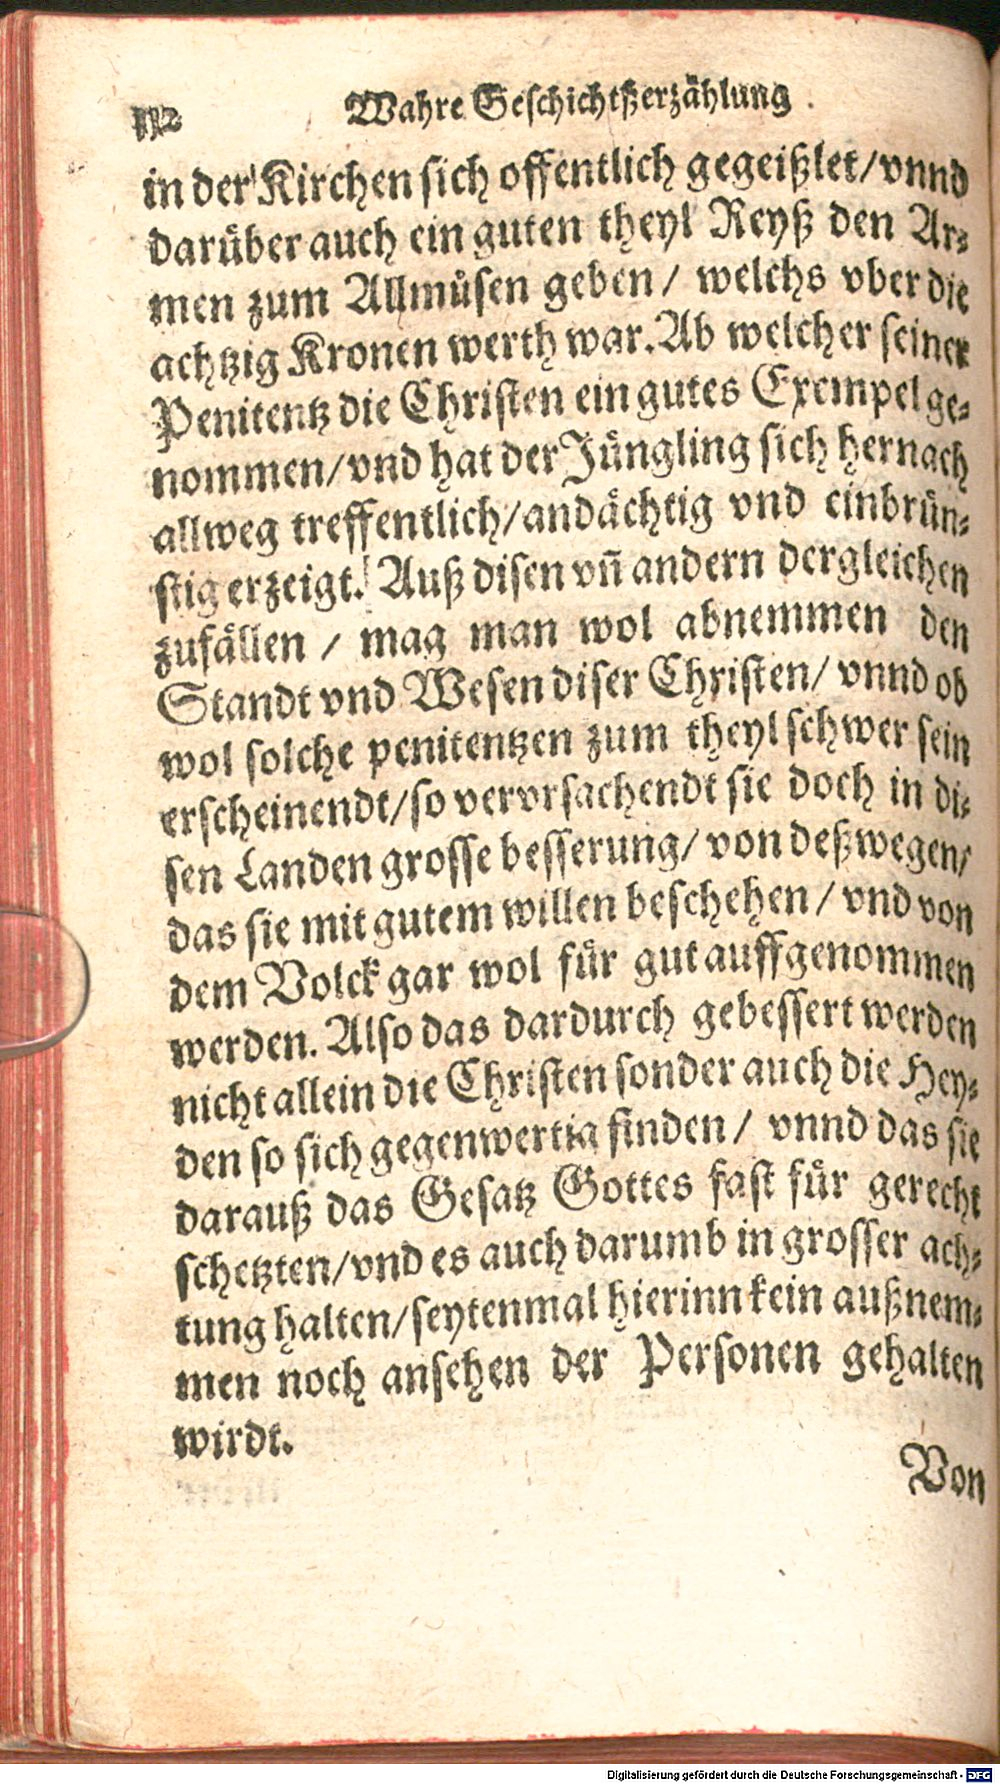 112 Wahre Geschichtßerzählung
in der Kirchen sich offentlich gegeißlet/ vnnd
darüber auch ein guten theyl Reyß den Ar-
men zum Allmůsen geben/ welchs vber die
achtzig Kronen werth war. Ab welcher seiner
Penitentz die Christen ein gutes Exempel ge-
nommen/ vnd hat der Jüngling sich hernach
allweg treffentlich/ andächtig vnd einbrün-
stig erzeigt. Auß disen vñ andern dergleichen
zufällen / mag man wol abnemmen den
Standt vnd Wesen diser Christen/ vnnd ob
wol solche penitentzen zum theyl schwer sein
erscheinendt/ so vervrsachendt sie doch in di-
sen Landen grosse besserung/ von deßwegen/
das sie mit gutem willen beschehen / vnd von
dem Volck gar wol für gut auffgenommen
werden. Also das dardurch gebessert werden
nicht allein die Christen sonder auch die Hey-
den so sich gegenwertig finden / vnnd das sie
darauß das Gesatz Gottes fast für gerecht
schetzten/ vnd es auch darumb in grosser ach-
tung halten/ seytenmal hierinn kein außnem-
men noch ansehen der Personen gehalten
wirdt.
Von
Digitalisierung gefördert durch die Deutsche Forschungsgemeinschaft - DFG